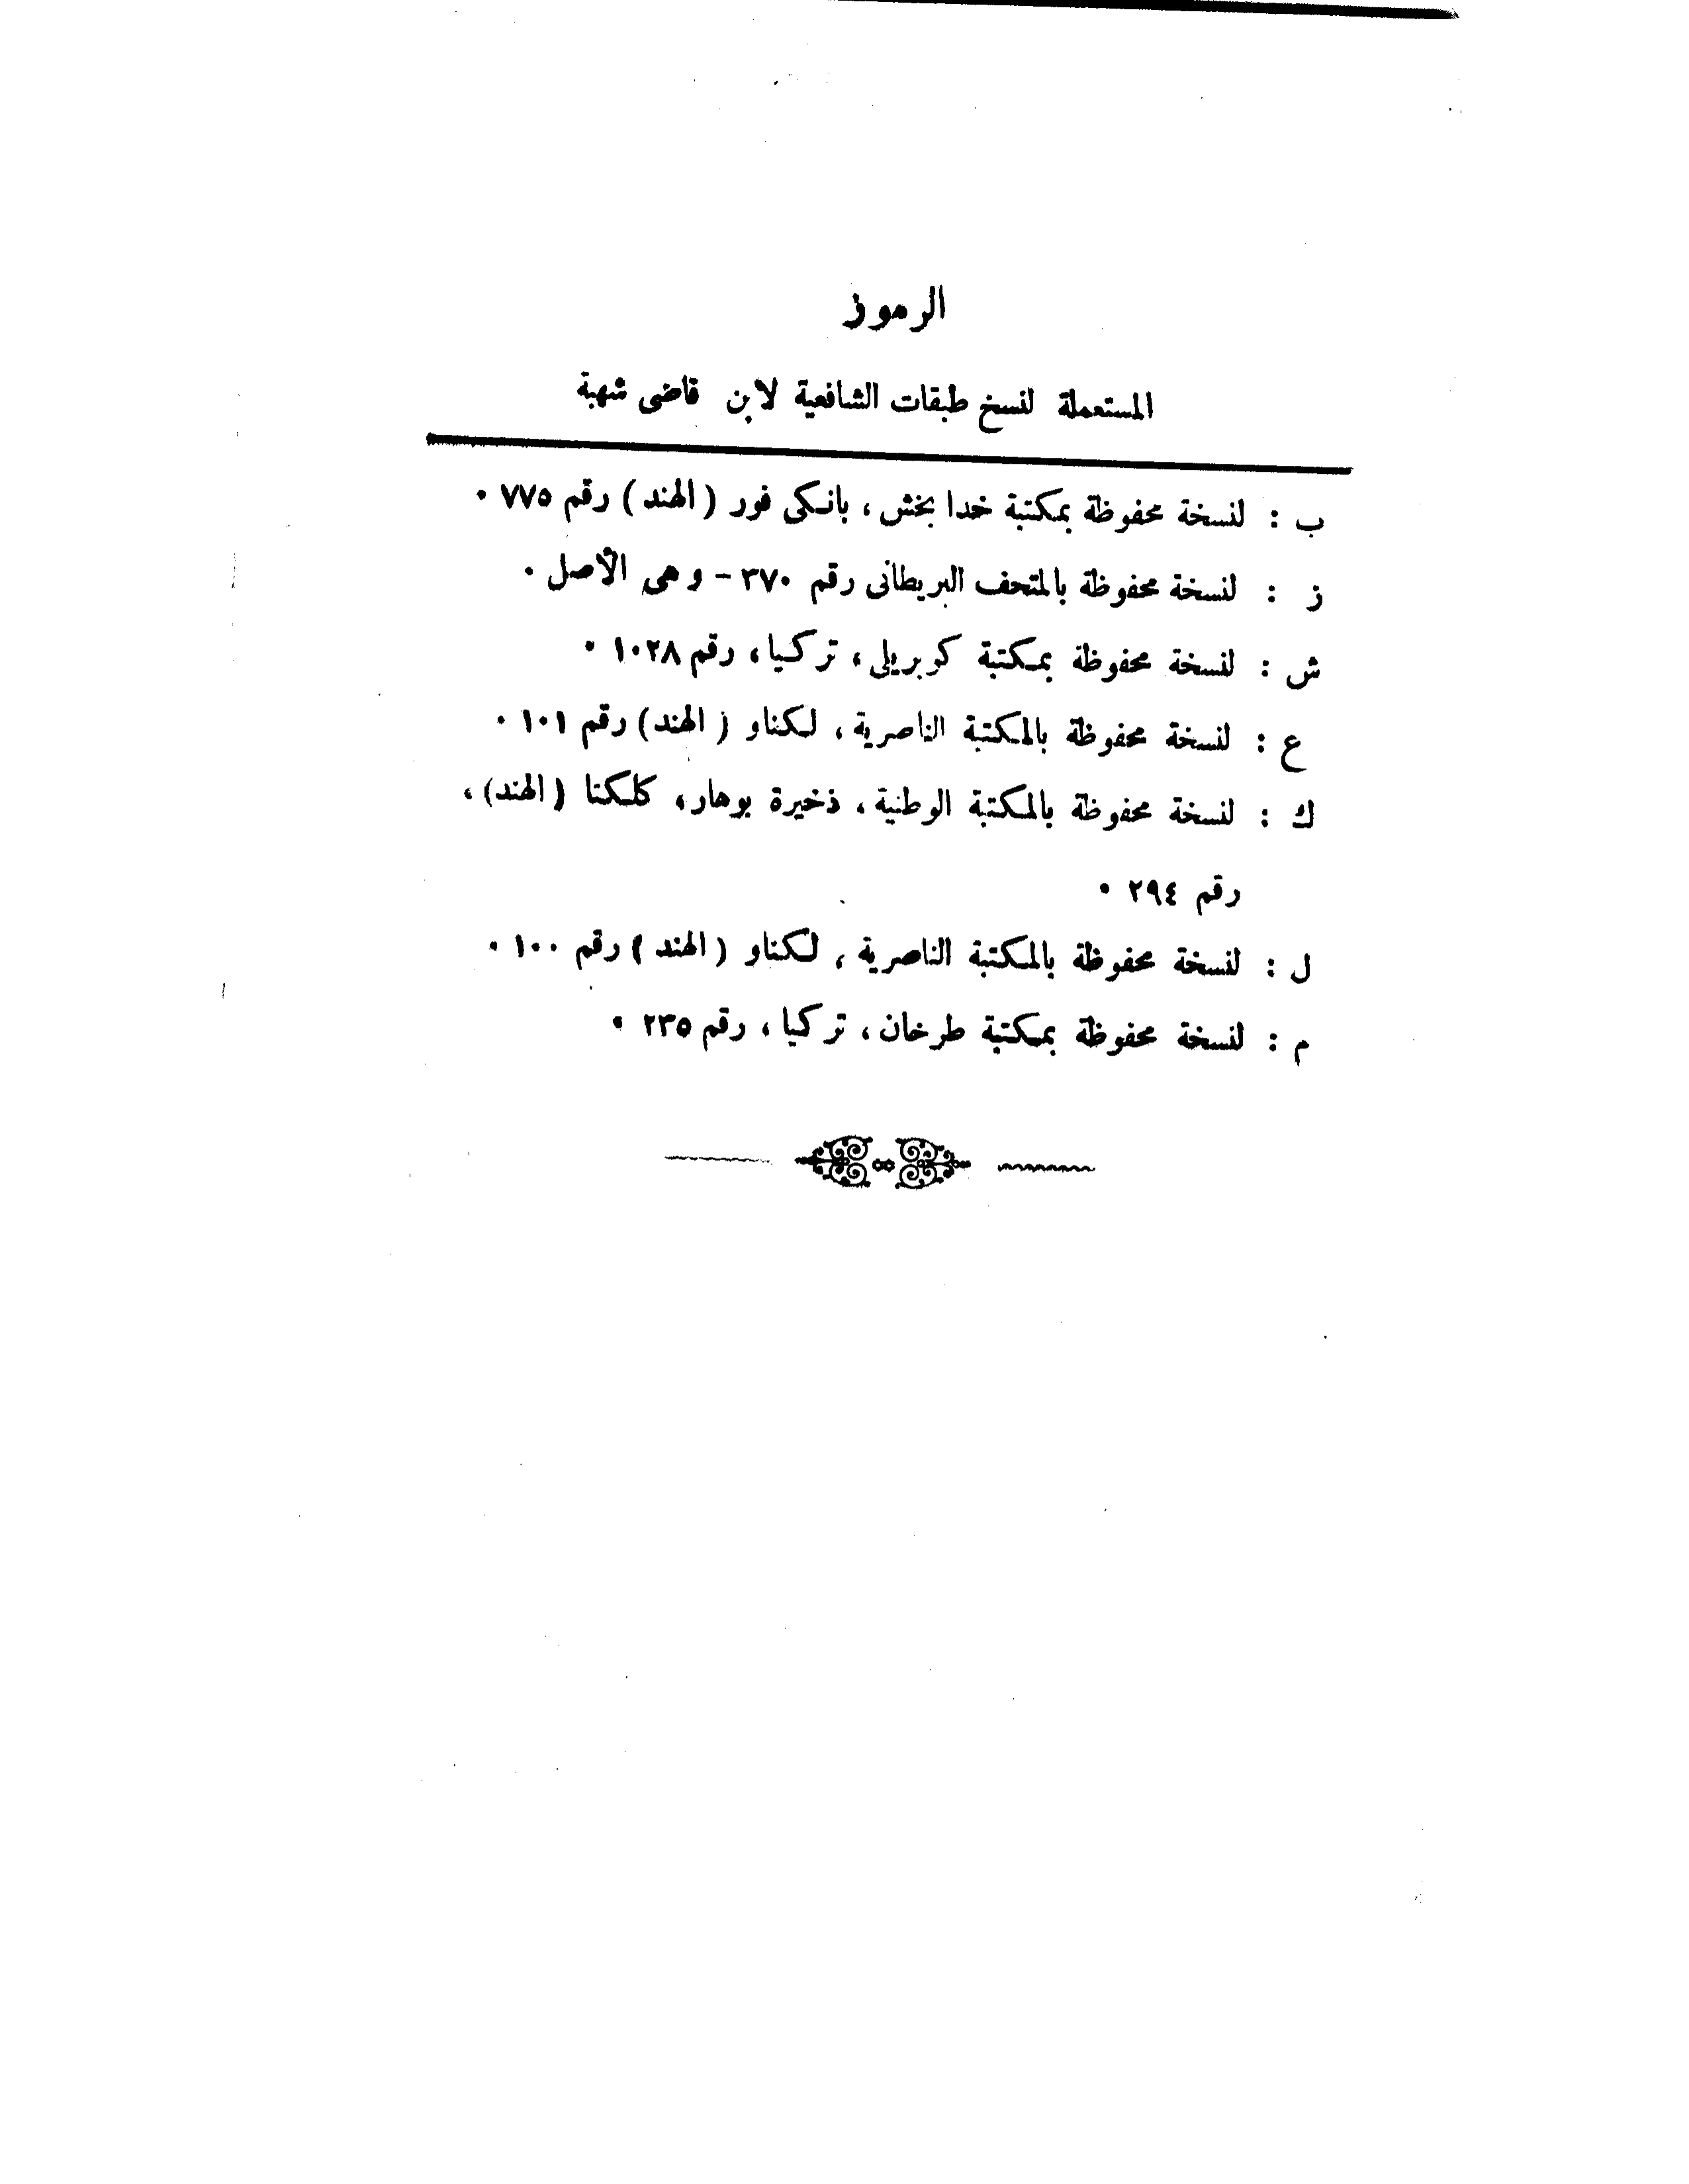 الرموز
المستعملة لنسخ طبقات الشافعية لابن قاضى شهبة
ب : لنسخة محفوظة بمكتبة خدا بخش، بانكى فور (الهند) رقم ٧٧٥ .
ز : لنسخة محفوظة بالمتحف البريطانى رقم ٣٧٠ - وهى الأصل .
ش : لنسخة محفوظة بمكتبة كوبريلى، تركيا، رقم ١٠٢٨ .
ع : لنسخة محفوظة بالمكتبة الناصرية، لكناو (الهند) رقم ١٠١ .
ك : لنسخة محفوظة بالمكتبة الوطنية، ذخيرة بوهار، كلكتا (الهند)،
رقم ٢٩٤ .
ل : لنسخة محفوظة بالمكتبة الناصرية، لكناو (الهند) رقم ١٠٠ .
م : لنسخة محفوظة بمكتبة طرخان، تركيا، رقم ٢٣٥ .